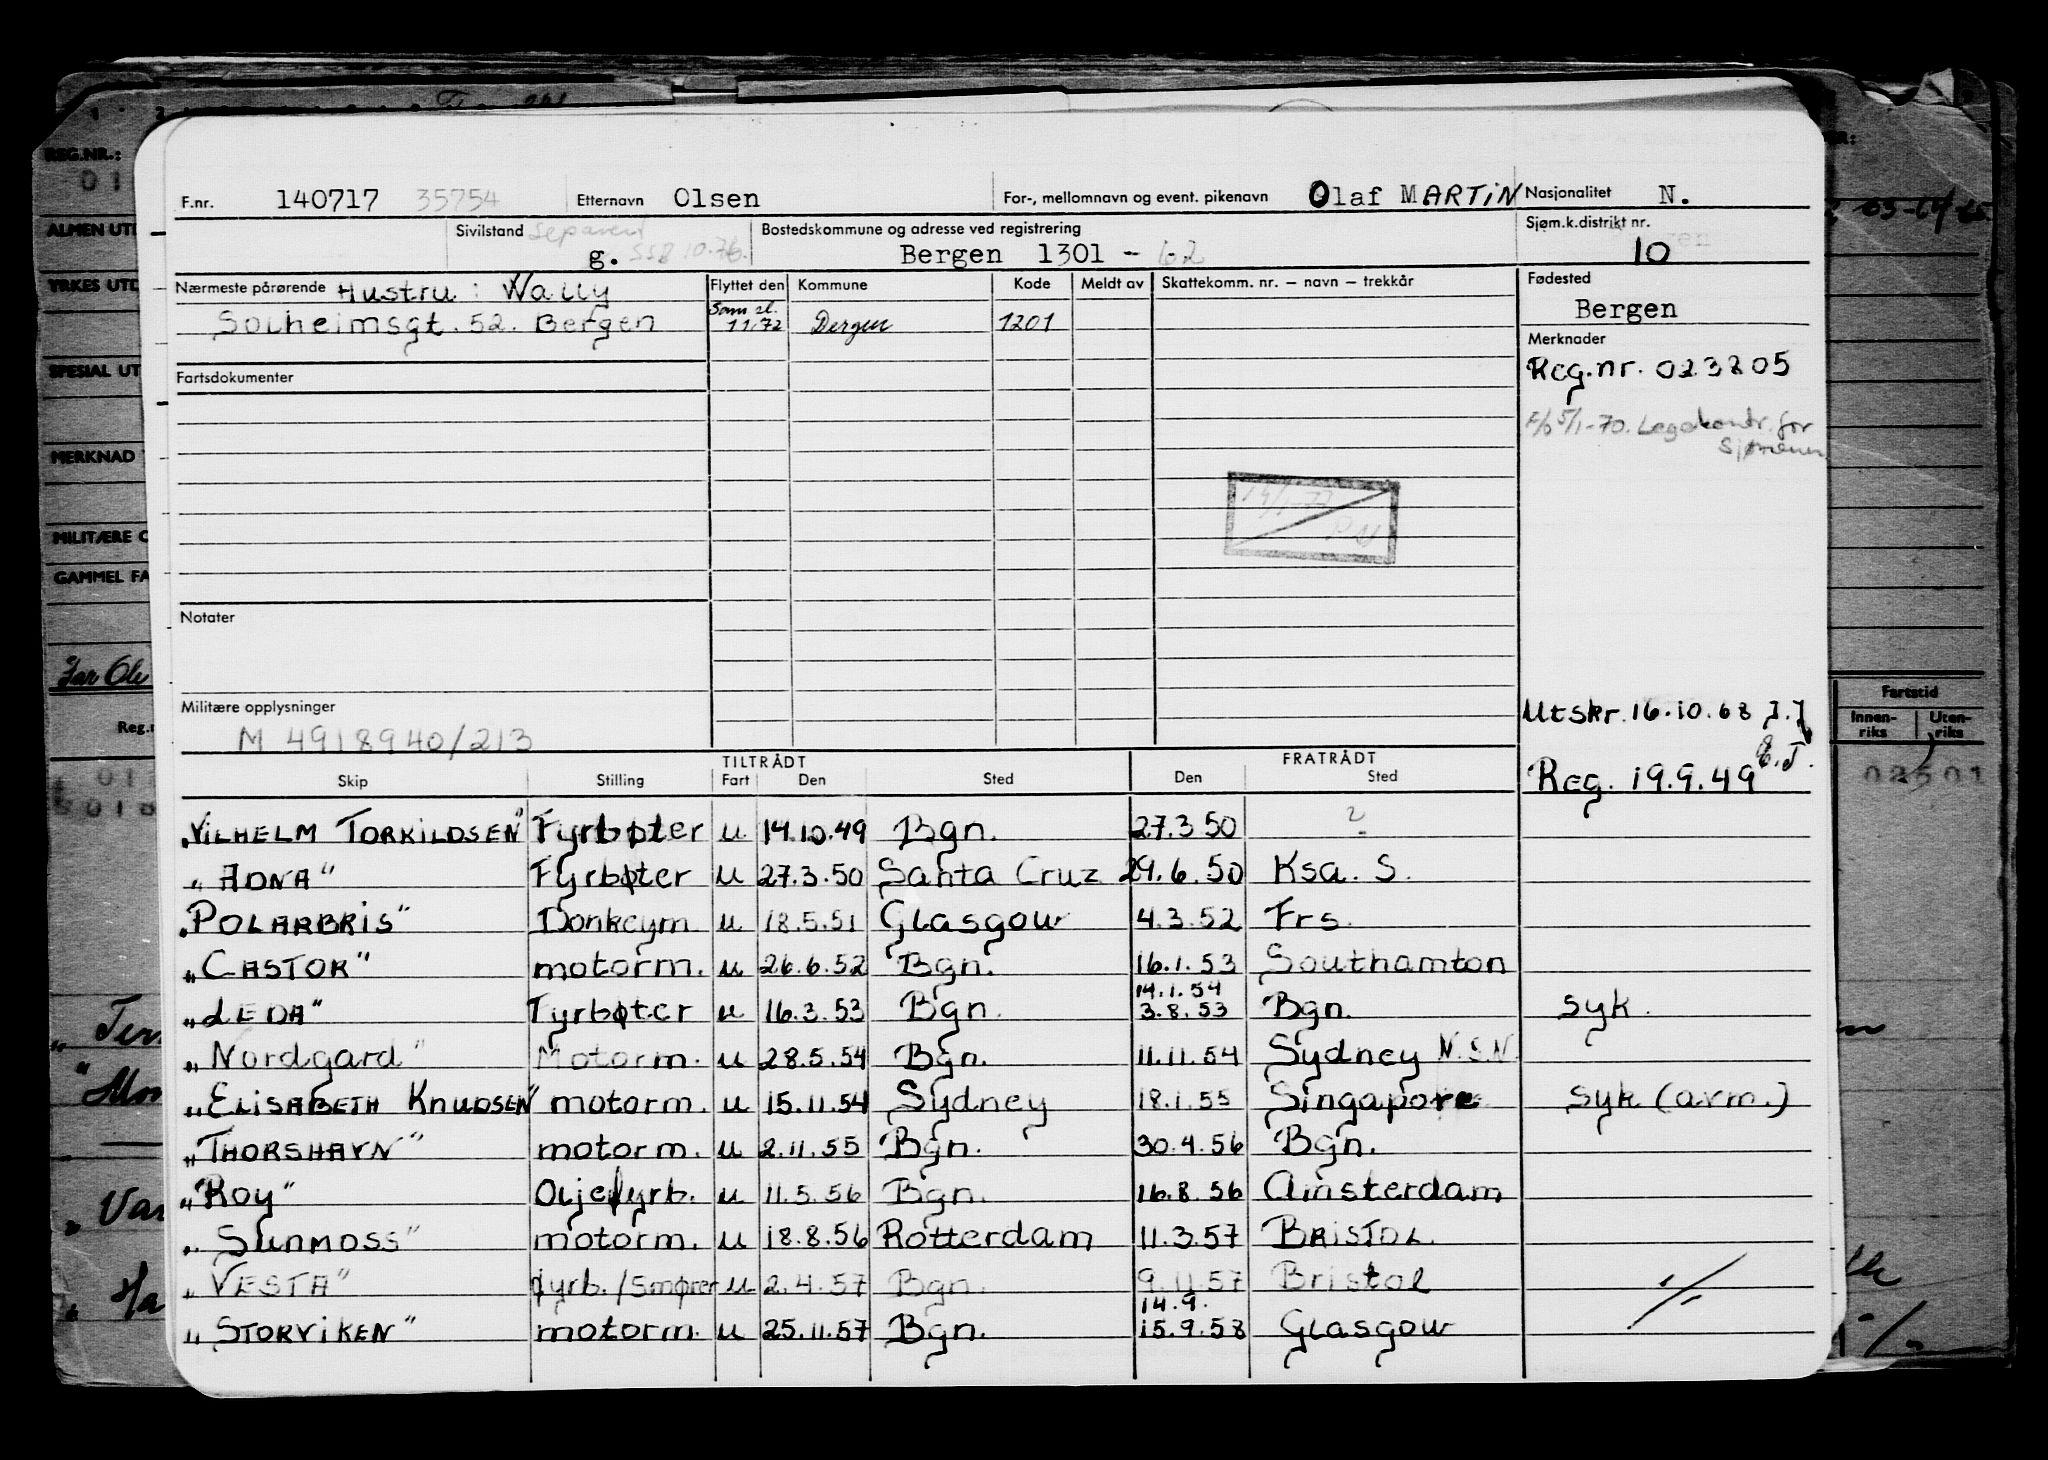 F.nr. 140717 35754 Etternavn Olsen For-, mellomnavn og event. pikenavn Olaf MARTiN Nasjonalitet N.
Sivilstand separert g. Bostedskommune og adresse ved registrering Bergen 1301 - 62 Sjøm.k.distrikt nr. 10
Nærmeste pårørende Hustru: Wally Flyttet den Kommune Kode Meldt av Skattekomm. nr. – navn – trekkår Fødested
Solheimsgt. 52. Bergen 11.72 Bergen 1201 Bergen
Merknader
Reg.nr. 023205
Fartsdokumenter
5/1-70. Legekontr. for
Sjømenn
14/1-77
Notater
Militære opplysninger
M 4918940/213
Utskr. 16.10.68 J.J
Reg. 19.9.49 E.J.
TILTRÅDT FRATRÅDT
Skip Stilling Fart Den Sted Den Sted
„VILHELM TORKILDSEN" Fyrbøter u 14.10.49 Bgn. 27.3 50 ?
„ADNA" Fyrbøter u 27.3.50 Santa Cruz 29.6.50 Ksa. S.
„POLARBRIS" Donkeym u 18.5.51 Glasgow 4.3.52 Frs.
„CASTOR" motorm. u 26.6.52 Bgn. 16.1.53 Southamton
14.1.54
„LEDA" Fyrbøter u 16.3.53 Bgn. 3.8.53 Bgn. syk.
„Nordgard" Motorm. u 28.5.54 Bgn. 11.11.54 Sydney N.S.W.
„ELiSABETH KNUDSEN" motorm. u 15.11.54 Sydney 18.1.55 Singapore syk (arm.)
„THORSHAVN" motorm. u 2.11.55 Bgn. 30.4.56 Bgn.
„Roy" Oljefyrb. u 11.5.56 Bgn. 16.8.56 Amsterdam
„SUNMOSS" motorm. u 18.8.56 Rotterdam 11.3.57 BRISTOL.
„VESTA" fyrb./smører u 2.4.57 Bgn. 9.11.57 Bristol
14.9.
„STORViKEN" motorm. u 25.11.57 Bgn. 15.9.58 Glasgow
REG.NR.:
ALMEN UTD
YRKES UTD
SPESIAL UT
MERKNAD
MILITÆRE O
GAMMEL FA
Far Ole
Reg.n
Fartstid
Innen-riks Uten-riks
02501